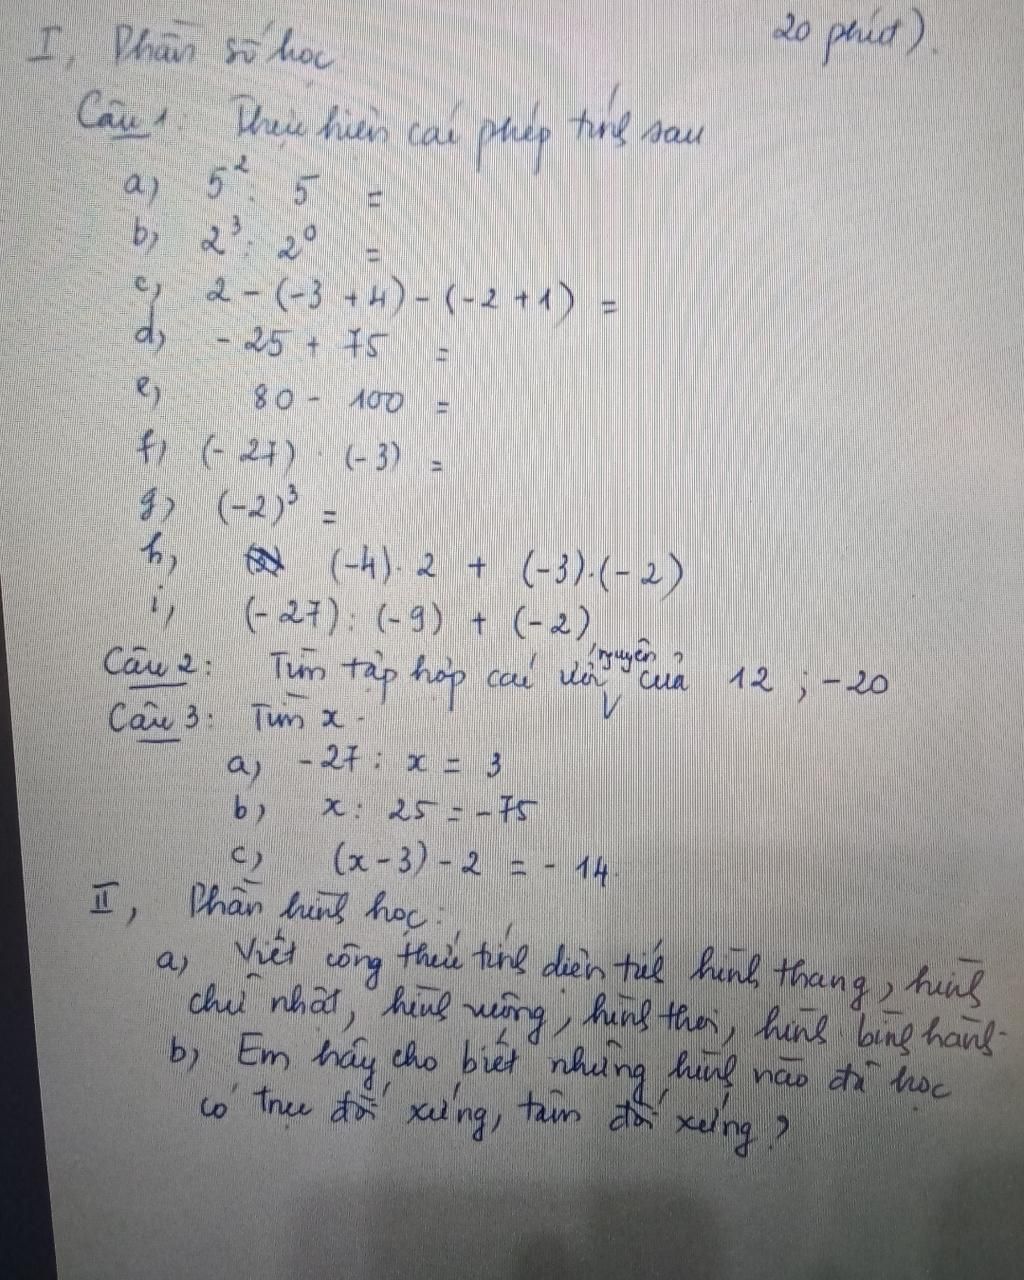 20 phút).
I, Phần số học
Câu 1: Thực hiện các phép tính sau
a) 5² : 5 =
b) 2³ : 2⁰ =
c) 2 - (-3 + 4) - (-2 + 1) =
d) - 25 + 75 =
e) 80 - 100 =
f) (- 27) . (-3) =
g) (-2)³ =
h) (-4). 2 + (-3).(-2)
i) (-27) : (-9) + (-2)
Câu 2: Tìm tập hợp các ước nguyên của 12 ; -20
Câu 3: Tìm x.
a) -27 : x = 3
b) x : 25 = -75
c) (x-3) - 2 = - 14.
II, Phần hình học:
a) Viết công thức tính diện tích hình thang, hình
chữ nhật, hình vuông, hình thoi, hình bình hành.
b) Em hãy cho biết những hình nào đã học
có trục đối xứng, tâm đối xứng ?